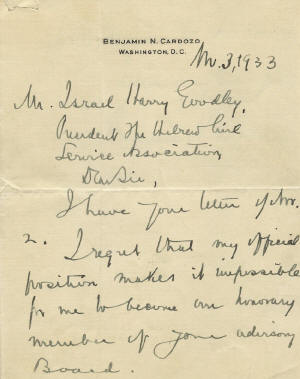 BENJAMIN N. CARDOZO
WASHINGTON, D.C.
Nov. 3, 1933
Mr. Israel Harry Goodley,
President The Hebrew Civil
Service Association
Dear Sir,
I have your letter of Nov.
2. I regret that my official
position makes it impossible
for me to become an honorary
member of your advisory
Board.